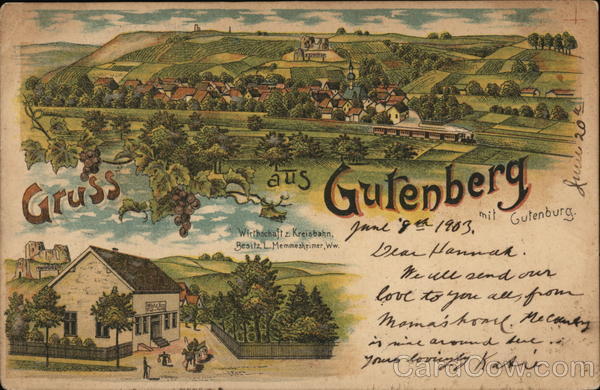 Gruss aus Gutenberg
mit Gutenburg.
Wirthschaft z. Kreisbahn,
Besitz. L. Memmesheimer, Ww.
June 8th 1903.
Dear Hannah.
We all send our
love to you all from
Mama's home.
is nice around here..
yours lovingly Katie
June 20th
CardCow.com